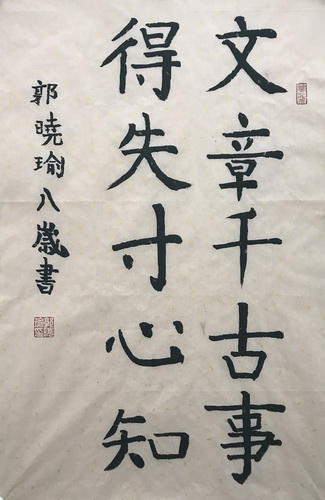 文章千古事
得失寸心知
郭曉瑜八歲書